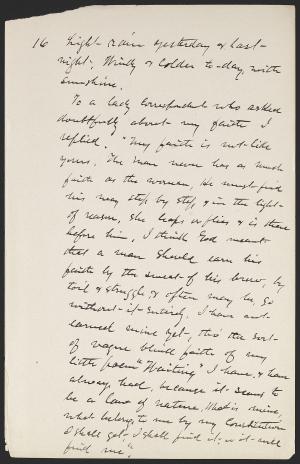 16 Light rain yesterday & last
night, Windy & colder to-day, with
sunshine.
To a lady correspondent who asked
doubtfully about my faith I
replied. "My faith is not like
yours. The man never has as much
faith as the woman, He must find
his way step by step, & in the light
of reason, she leaps or flies & is there
before him, I think God meant
that a man should earn his
faith by the sweat of his brow, by
toil & struggle, & often may be, go
without it entirely. I have not
earned mine yet, tho' the sort
of vague blind faith of my
little poem "Waiting" I have, & have
always had, because it seems to
be a law of nature, What is mine,
what belongs to me by my Constitution
I shall get, I shall find it, or it will
find me."